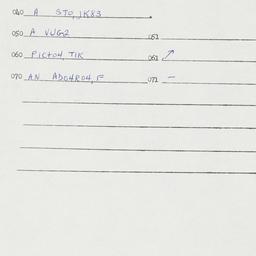 040 A STO, JK83
050 A VUG2 051
060 PICTOH, TIK 061
070 AN ADO4RO4, F 071 —